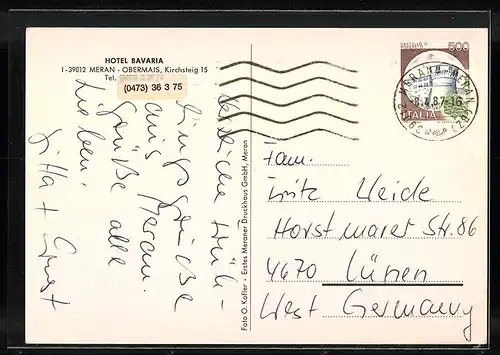 HOTEL BAVARIA
I-39012 MERAN - OBERMAIS, Kirchsteig 15
Tel.
(0473) 36 3 75
Herzliche Früh-
lingsgrüße
aus Meran.
Grüße alle
Lieben.
Gitta + Ernst
Foto O. Kofler - Erstes Meraner Druckhaus GmbH, Meran
500
ITALIA
MERANO MERAN
87-16
Fam.
Fritz Weide
Horstmarer Str. 86
4670 Lünen
West Germany